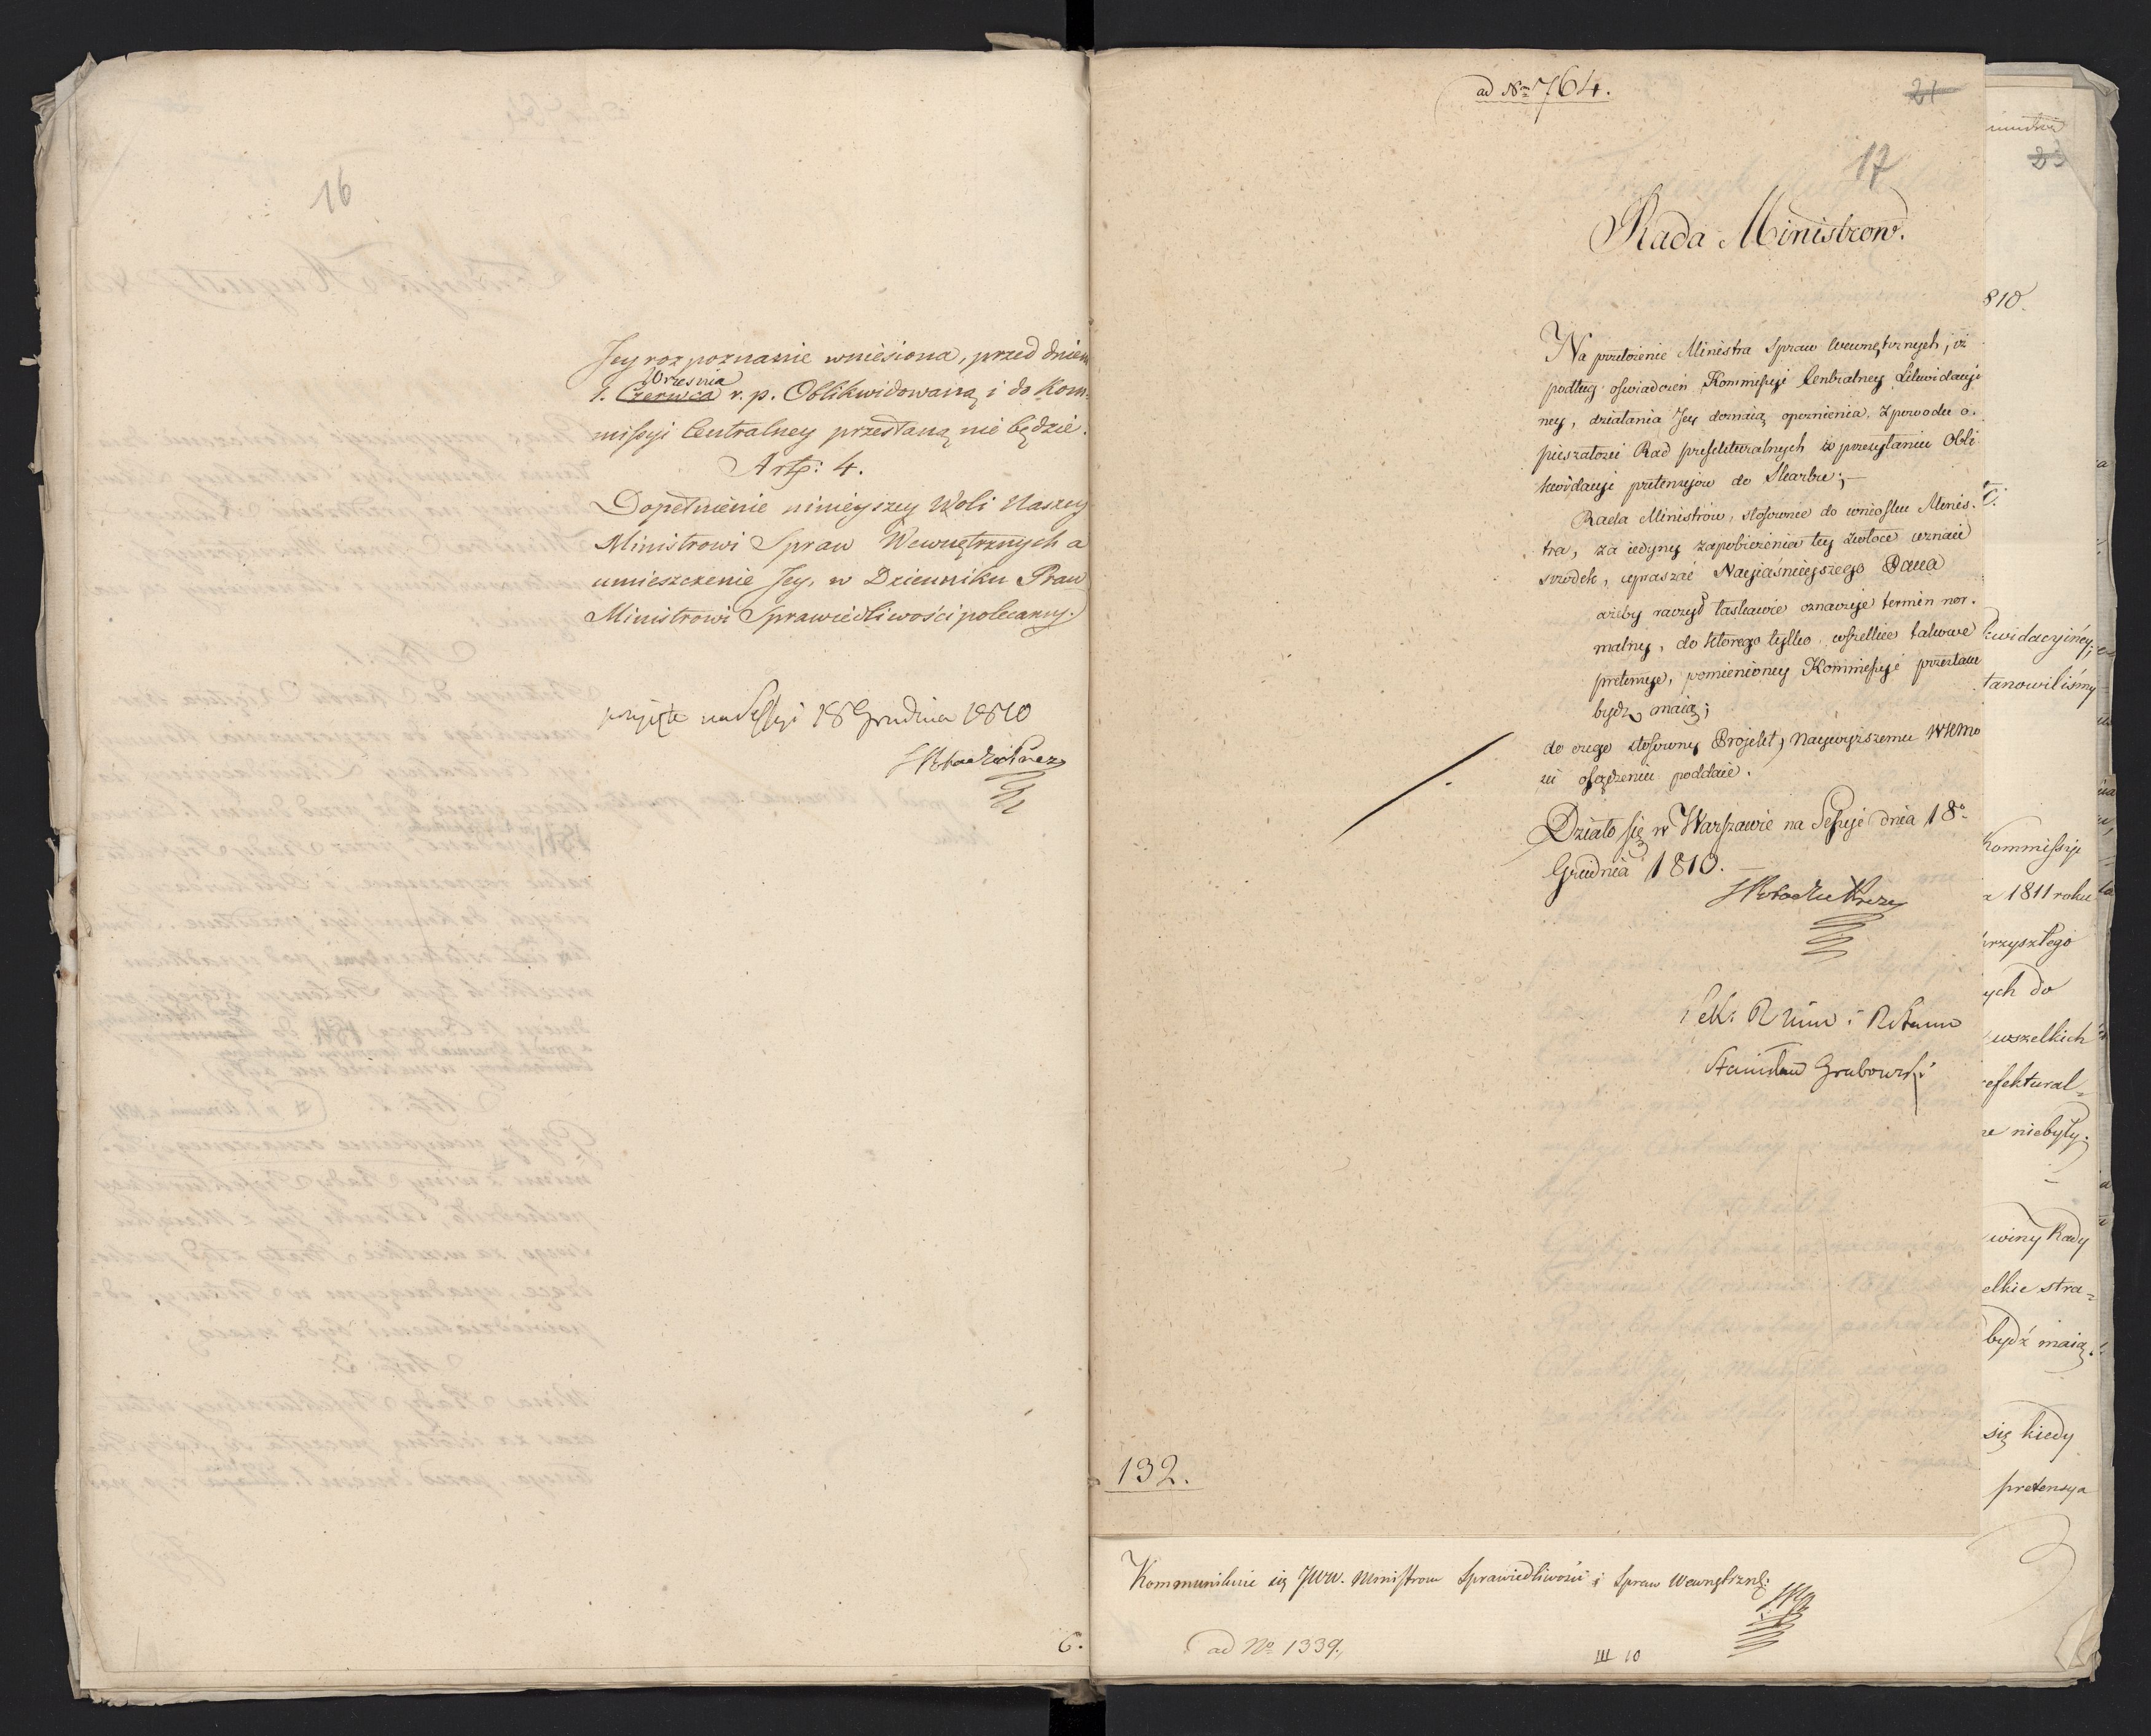 16
Jey rozpoznanie wniesiona, przed dniem
Września
1. Czerwca r. p. Oblikwidowaną i do Kom-
missyi Centralney przesłaną nie będzie.
Art: 4.
Dopełnienie ninieyszey Woli Naszey
Ministrowi Spraw Wewnętrznych a
umieszczenie Jey, w Dzienniku Praw
Ministrowi Sprawiedliwości polecamy.
przyięte na Sessyi 18 Grudnia 1810
6.
ad Nrm 764.
21
17
Rada Ministrow.
Na przełożenie Ministra Spraw Wewnętrznych, iż
podług oświadczeń Kommissyi Centralney Likwidacyi
ney, działania Jey doznaią opoznienia, z powodu o.
pieszałości Rad prefekturalnych w przesyłaniu Obli
kwidacyi pretensyow do Skarbu;
Rada Ministrów, stosownie do wniosku Minis.
tra, za iedyny zapobieżenia tey zwłoce uznaie
srzodek, upraszać Nayiaśnieyszego Pana
ażeby raczył łaskawie oznaczyć termin nor.
malny, do ktorego tylko, wszelkie takowe
pretensye, pomienioney Kommissyi przesłane
bydź maią;
do czego stosowny Projekt, Naywyższemu WKMo
sci osądzeniu poddaie.
Działo się w Warszawie na Sessyi dnia 18o
Grudnia 1810.
Sek: R Stanu i R
Stanisław Grabowski
132.
Kommunikuie się JWW. Ministrom Sprawiedliwości i Spraw Wewnętrzn:
ad No 1339.
III 10
23
810.
kwidacyiney;
tanowiliśmy
Kommissyi
a 1811 roku
przyszłego
ych do
wszelkich
efektural=
ne niebyły.
winy Rady
elkie stra=
bydź maią.
się kiedy
pretensya